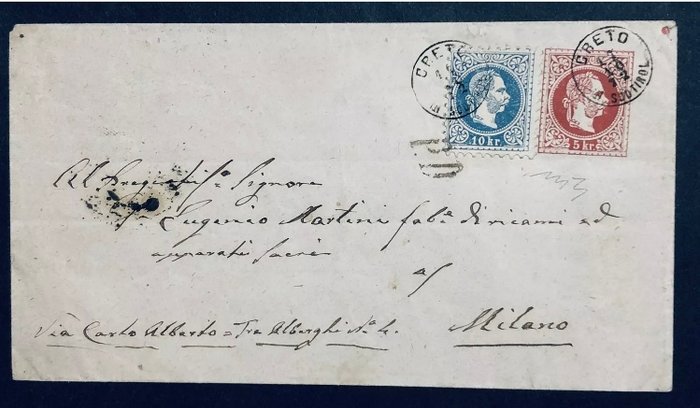 CRETO
CRETO
SÜDTIROL
10 kr.
5 kr.
PD
Al Pregiatis.º Signore
Eugenio Martini fab.e di ricami ed
apparati sacri
a
Milano
Via Carlo Alberto = Tre Alberghi N.º 4.